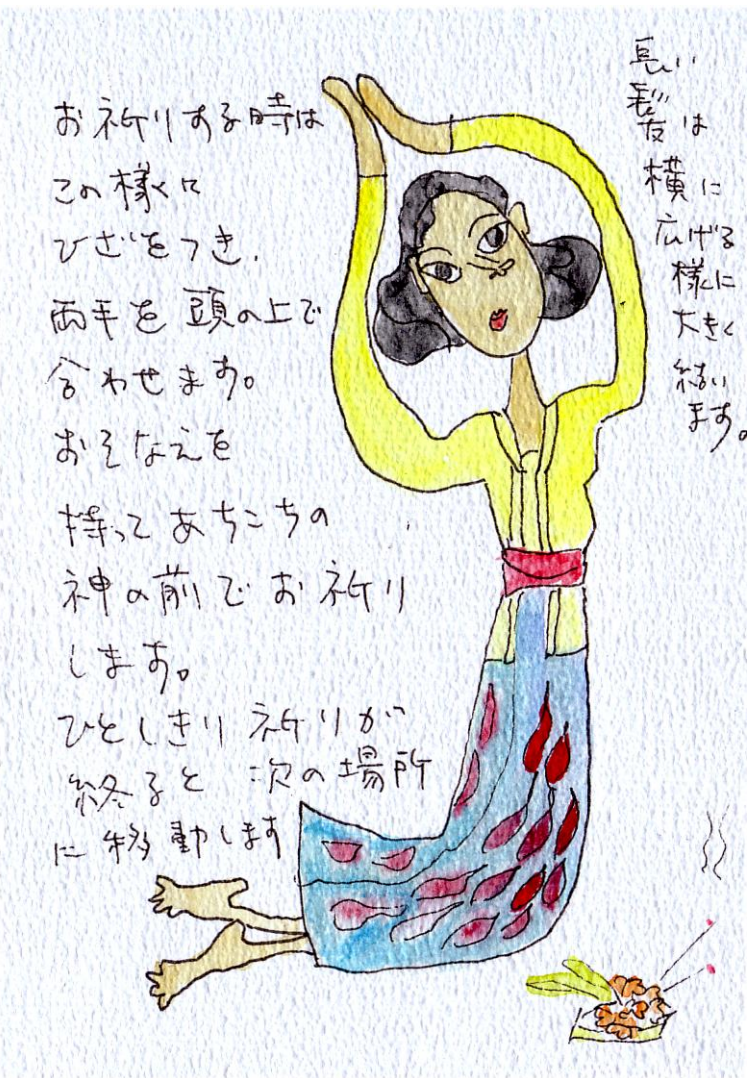 お祈りする時は
この様に
ひざをつき、
両手を頭の上で
合わせます。
おそなえを
持ってあちこちの
神の前でお祈り
します。
ひとしきり祈りが
終ると次の場所
に移動します
長い
髪は
横に
広げる
様に
大きく
結い
ます。